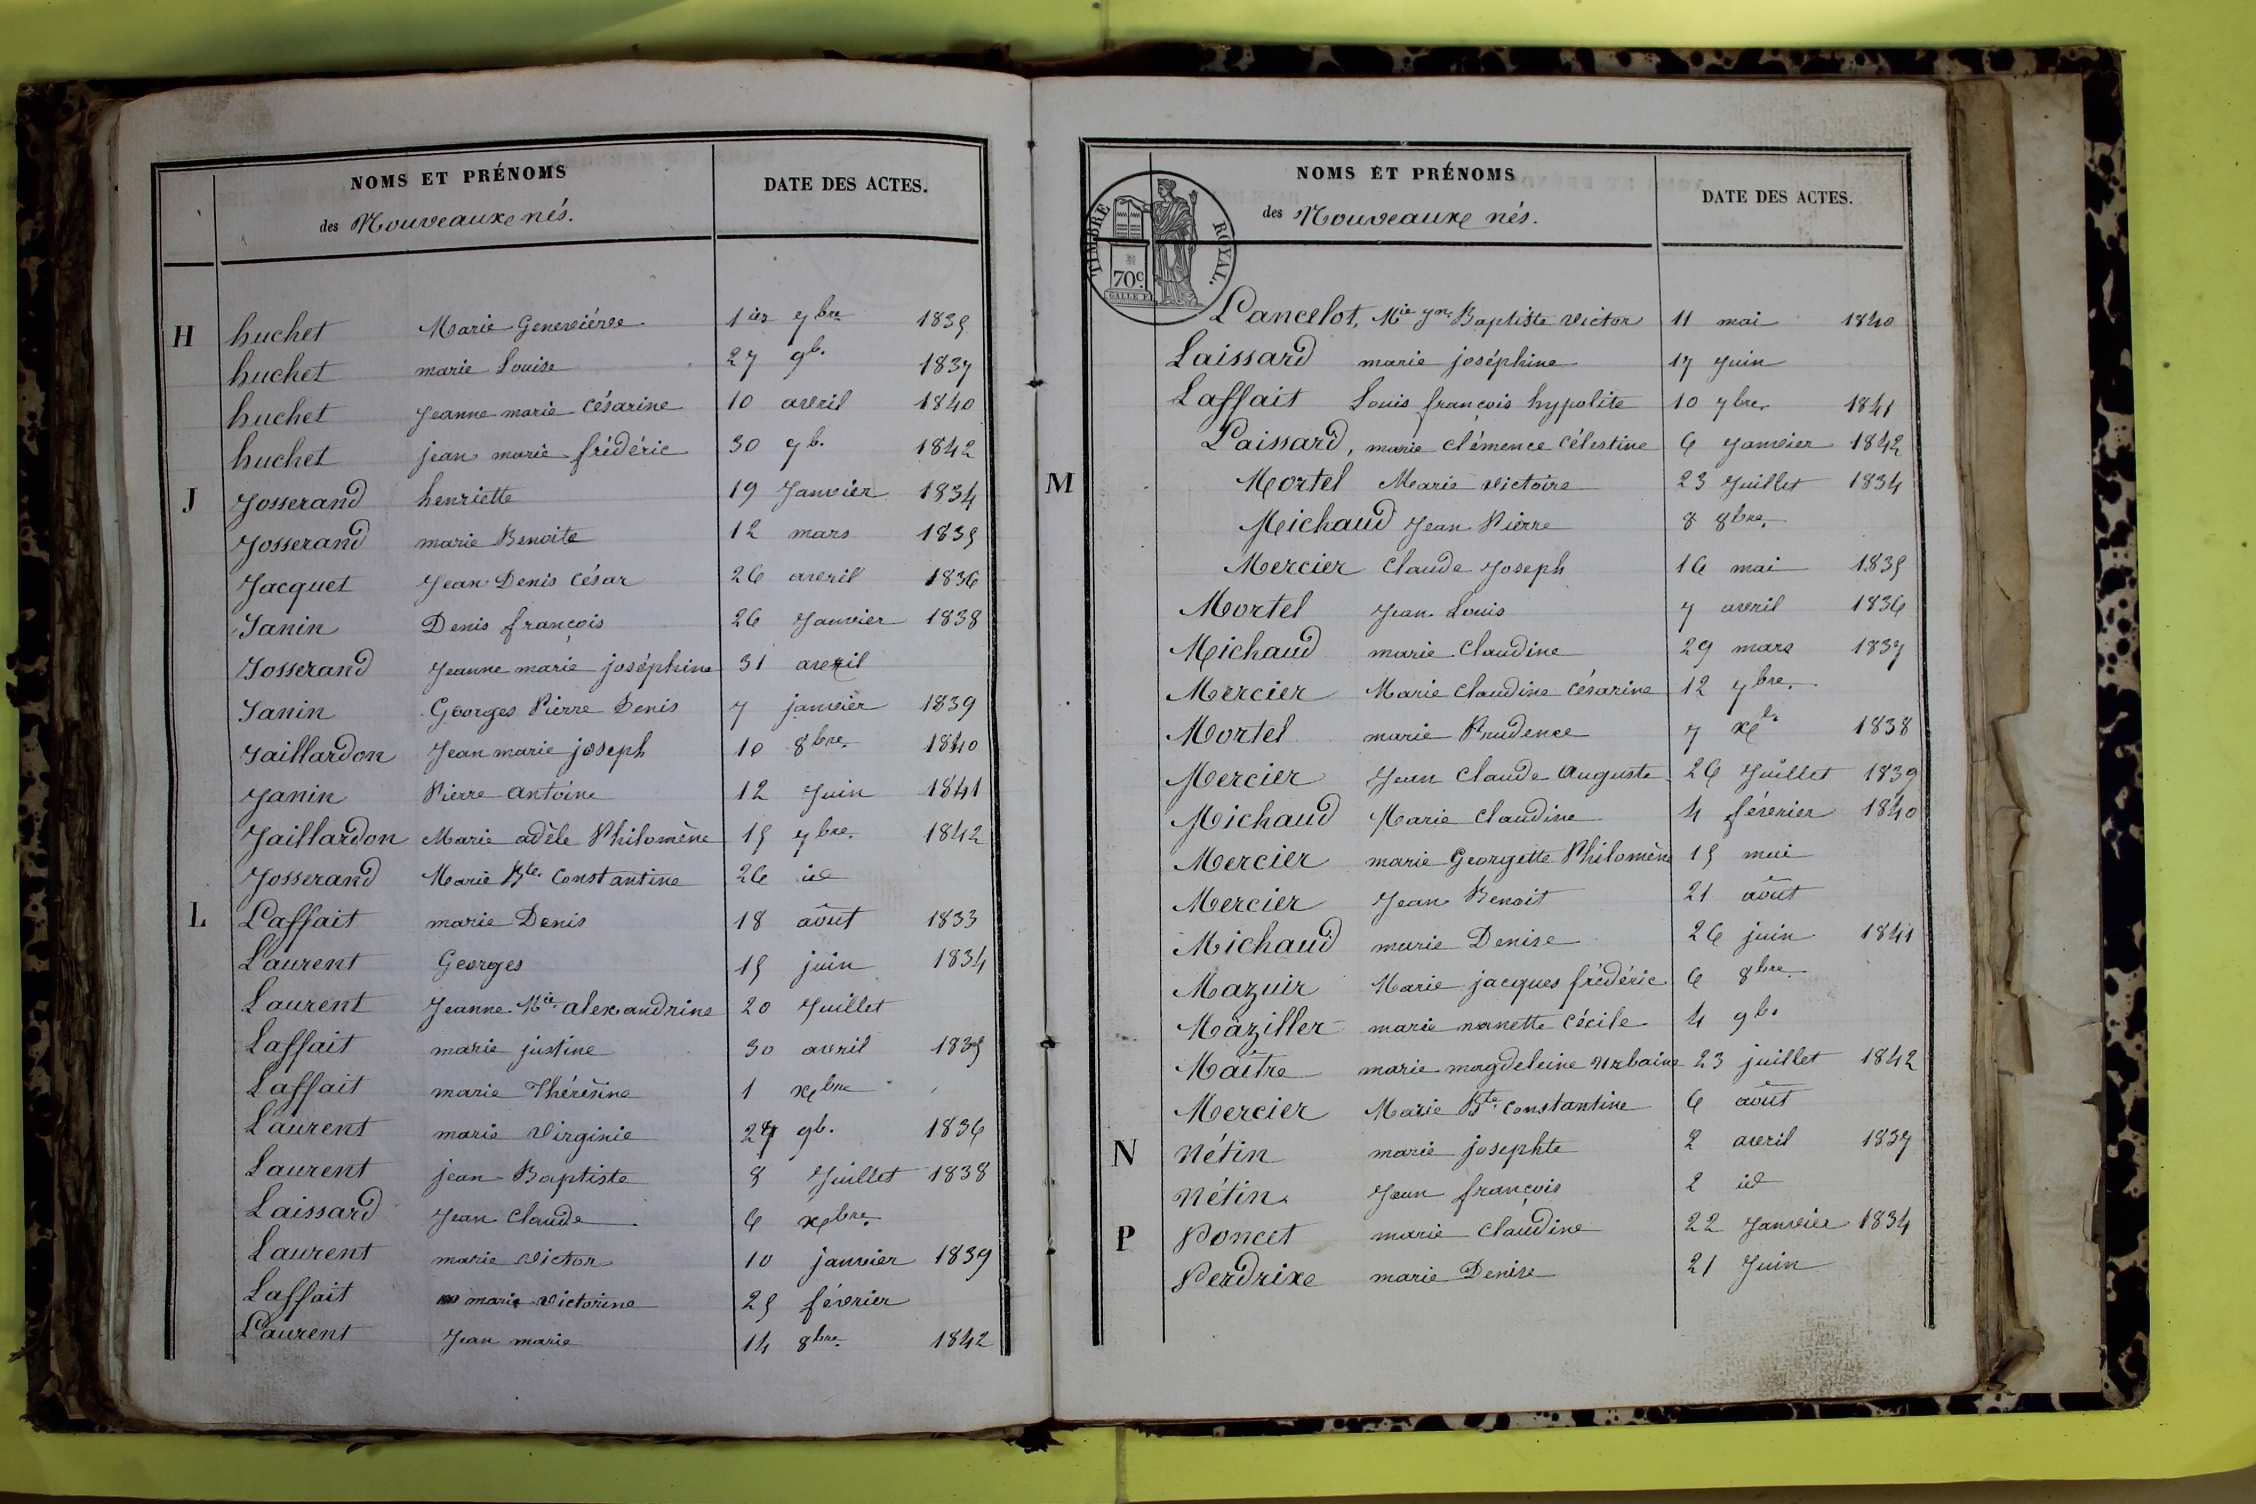 NOMS ET PRÉNOMS DATE DES ACTES.
des Nouveaux nés.
H huchet Marie Geneviéve 1er 7bre 1835
huchet marie Louise 27 9b. 1837
huchet Jeanne marie Césarine 10 avril 1840
huchet jean marie frédéric 30 9b. 1842
J Josserand henriette 19 Janvier 1834
Josserand marie Benoite 12 mars 1835
Jacquet Jean Denis César 26 avril 1836
Janin Denis françois 26 Janvier 1838
Josserand Jeanne marie joséphine 31 avril
Janin Georges Pierre Denis 7 janvier 1839
Jaillardon Jean marie joseph 10 8bre. 1840
Janin Pierre antoine 12 Juin 1841
Jaillardon Marie adèle Philomène 15 7bre. 1842
Josserand Marie Bte. Constantine 26 id
L Laffait marie Denis 18 aôut 1833
Laurent Georges 15 juin 1834
Laurent Jeanne Mie alexandrine 20 Juillet
Laffait marie justine 30 avril 1835
Laffait marie Thérèsine 1 xbre
Laurent marie Virginie 9b. 1836
Laurent jean Baptiste 8 Juillet 1838
Laissard Jean Claude 6 xbre.
Laurent marie Victor 10 janvier 1839
Laffait marie Victorine 25 février
Laurent Jean marie 14 8bre. 1842
NOMS ET PRÉNOMS DATE DES ACTES.
des Nouveaux nés.
TIMBRE ROYAL.
70c.
Lancelot, Mie Baptiste Victor 11 mai 1840
Laissard marie joséphine 17 Juin
Laffait Louis françois hypolite 10 7bre. 1841
Laissard, marie Clémence Célestine 6 Janvier 1842
M Mortel Marie Victoire 23 Juillet 1834
Michaud Jean Pierre 8 8bre.
Mercier Claude Joseph 16 mai 1835
Mortel Jean Louis 7 avril 1836
Michaud marie Claudine 29 mars 1837
Mercier Marie Claudine Césarine 12 7bre.
Mortel marie Prudence 7 xb. 1838
Mercier Jean Claude Auguste 26 Juillet 1839
Michaud Marie Claudine 4 février 1840
Mercier marie Georgette Philomène 15 mai
Mercier Jean Benoit 21 aôut
Michaud marie Denise 26 juin 1841
Mazuir Marie jacques frédéric 6 8bre.
Maziller marie nanette Cécile 4 9b.
Maitre marie magdeleine Urbaine 23 juillet 1842
Mercier Marie Bte. Constantine 6 aôut
N Nétin marie josephte 2 avril 1837
Nétin Jean françois 2 id
P Poncet marie Claudine 22 Janvier 1834
Perdrix marie Denise 21 Juin